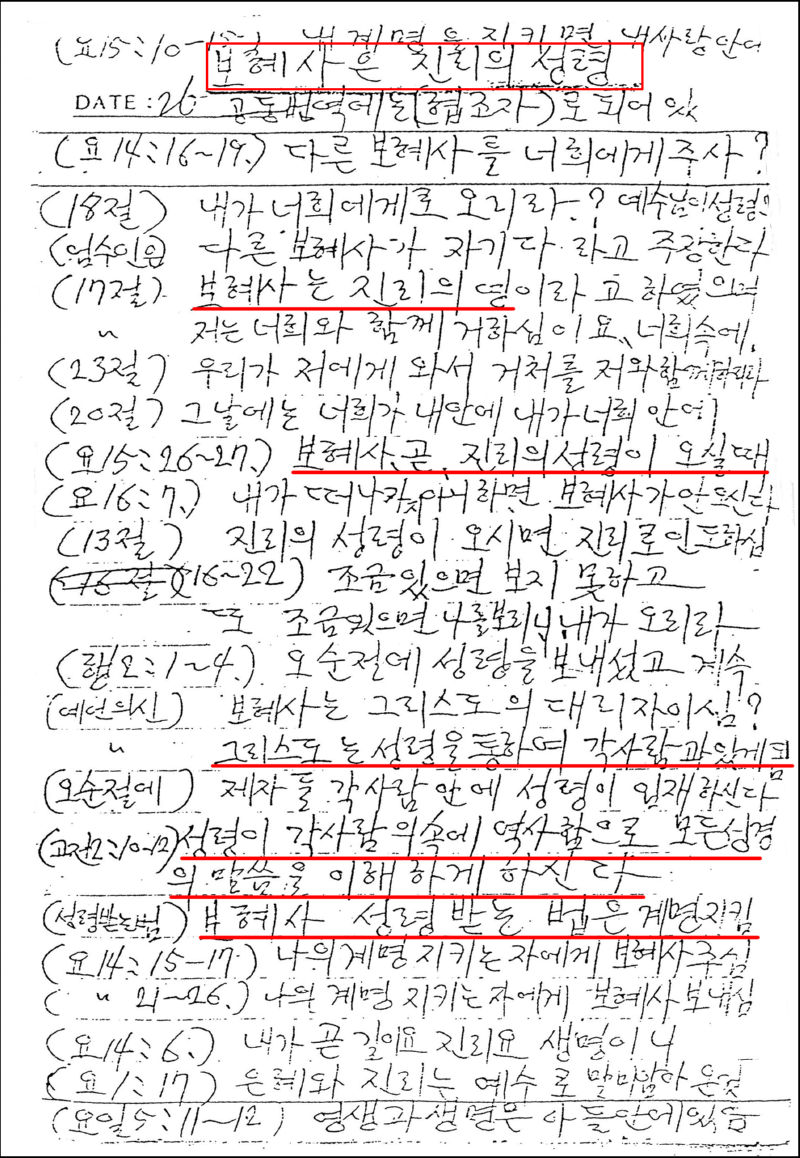 (요15:10-15) 내 계명을 지키면 내 사랑 안에
보혜사은 진리의 성령
DATE : 26 공동번역에는 (협조자)로 되어 있
(요14:16~19.) 다른 보혜사를 너희에게 주사?
(18절) 내가 너희에게로 오리라.? 예수님이 성령으
다른 보혜사가 자기다 라고 주장한다
(17절) 보혜사는 진리의 영이라고 하였으며
〃 저는 너희와 함께 거하심이요, 너희속에,
(23절) 우리가 저에게 와서 거처를 저와 함께하리라
(20절) 그날에는 너희가 내안에 내가 너희 안에
(요15:26~27.) 보혜사, 곧, 진리의 성령이 오실때
(요16:7.) 내가 떠나가지 아니하면 보혜사가 안오신다
(13절) 진리의 성령이 오시면 진리로 인도하심
(16절)(16~22) 조금있으면 보지 못하고
또 조금있으면 나를 보리니, 내가 오리라
(행2:1~4.) 오순절에 성령을 보내셨고 계속
(예언의신) 보혜사는 그리스도의 대리자이심?
〃 그리스도는 성령을 통하여 각사람과 있게됨
(오순절에) 제자들 각사람 안에 성령이 임재하신다
(고전2:10-12) 성령이 각사람의 속에 역사함으로 모든성경
의 말씀을 이해하게 하신다
(성령받는법) 보혜사 성령받는 법은 계명지킴
(요14:15-17.) 나의 계명 지키는 자에게 보혜사 주심
(〃 21~26.) 나의 계명 지키는 자에게 보혜사 보내심
(요14:6.) 내가 곧 길이요 진리요 생명이니
(요1:17) 은혜와 진리는 예수로 말미암아 온것
(요일5:11~12) 영생과 생명은 아들안에 있음